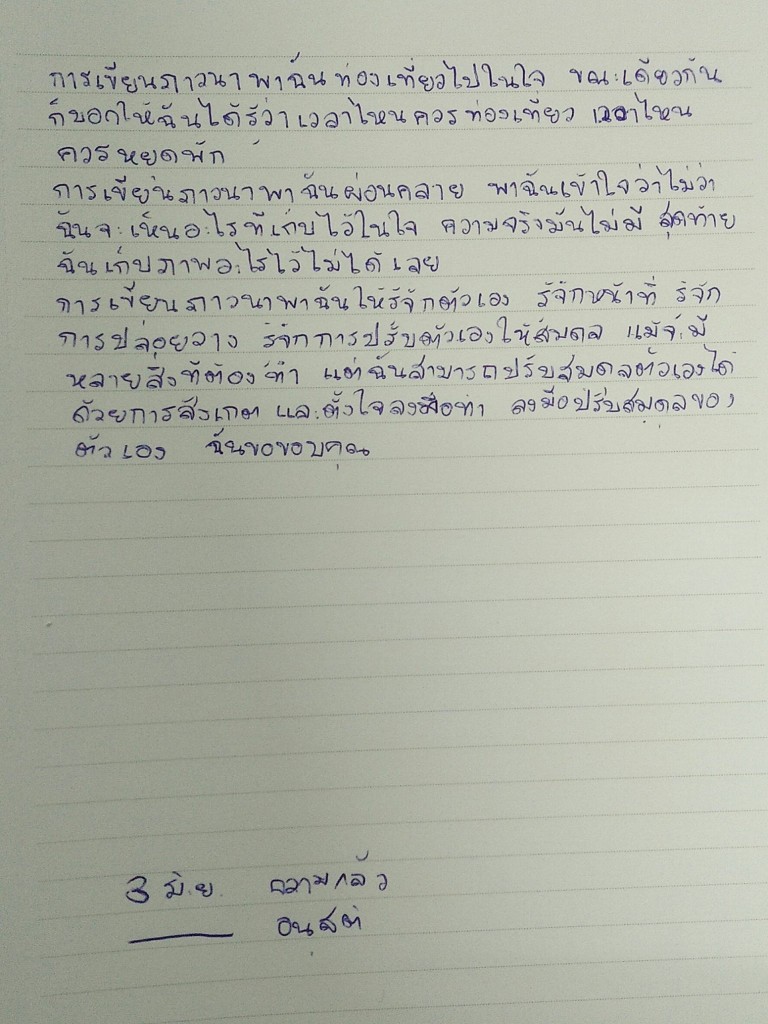 การเขียนภาวนาพาฉันท่องเที่ยวไปในใจ ขณะเดียวกัน
ก็บอกให้ฉันได้รู้ว่าเวลาไหนควรท่องเที่ยว เวลาไหน
ควรหยุดพัก
การเขียนภาวนาพาฉันผ่อนคลาย พาฉันเข้าใจว่าไม่ว่า
ฉันจะเห็นอะไรที่เก็บไว้ในใจ ความจริงมันไม่มี สุดท้าย
ฉันเก็บภาพอะไรไว้ไม่ได้เลย
การเขียนภาวนาพาฉันให้รู้จักตัวเอง รู้จักหน้าที่ รู้จัก
การปล่อยวาง รู้จักการปรับตัวเองให้สมดุล แม้จะมี
หลายสิ่งที่ต้องทำ แต่ฉันสามารถปรับสมดุลตัวเองได้
ด้วยการสังเกต และตั้งใจลงมือทำ ลงมือปรับสมดุลของ
ตัวเอง ฉันขอขอบคุณ
3 มิ.ย. ความกลัว
อนุสติ